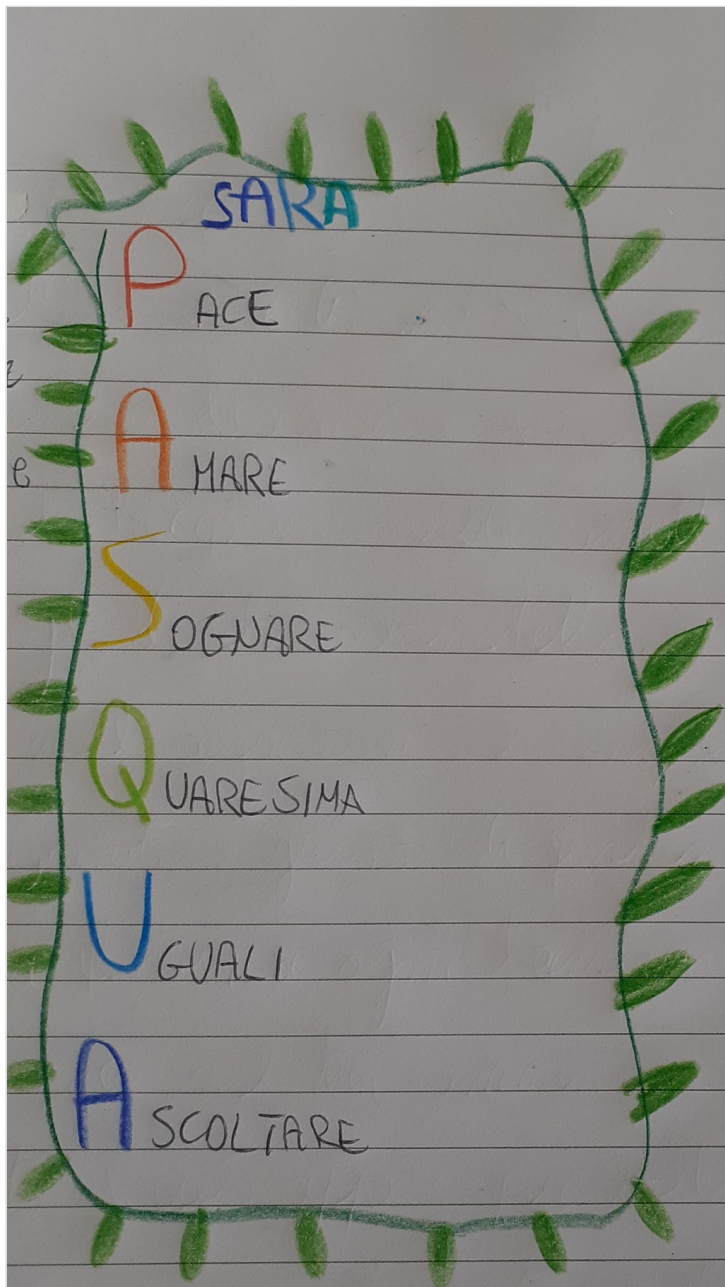 SARA
PACE
AMARE
SOGNARE
QUARESIMA
UGUALI
ASCOLTARE